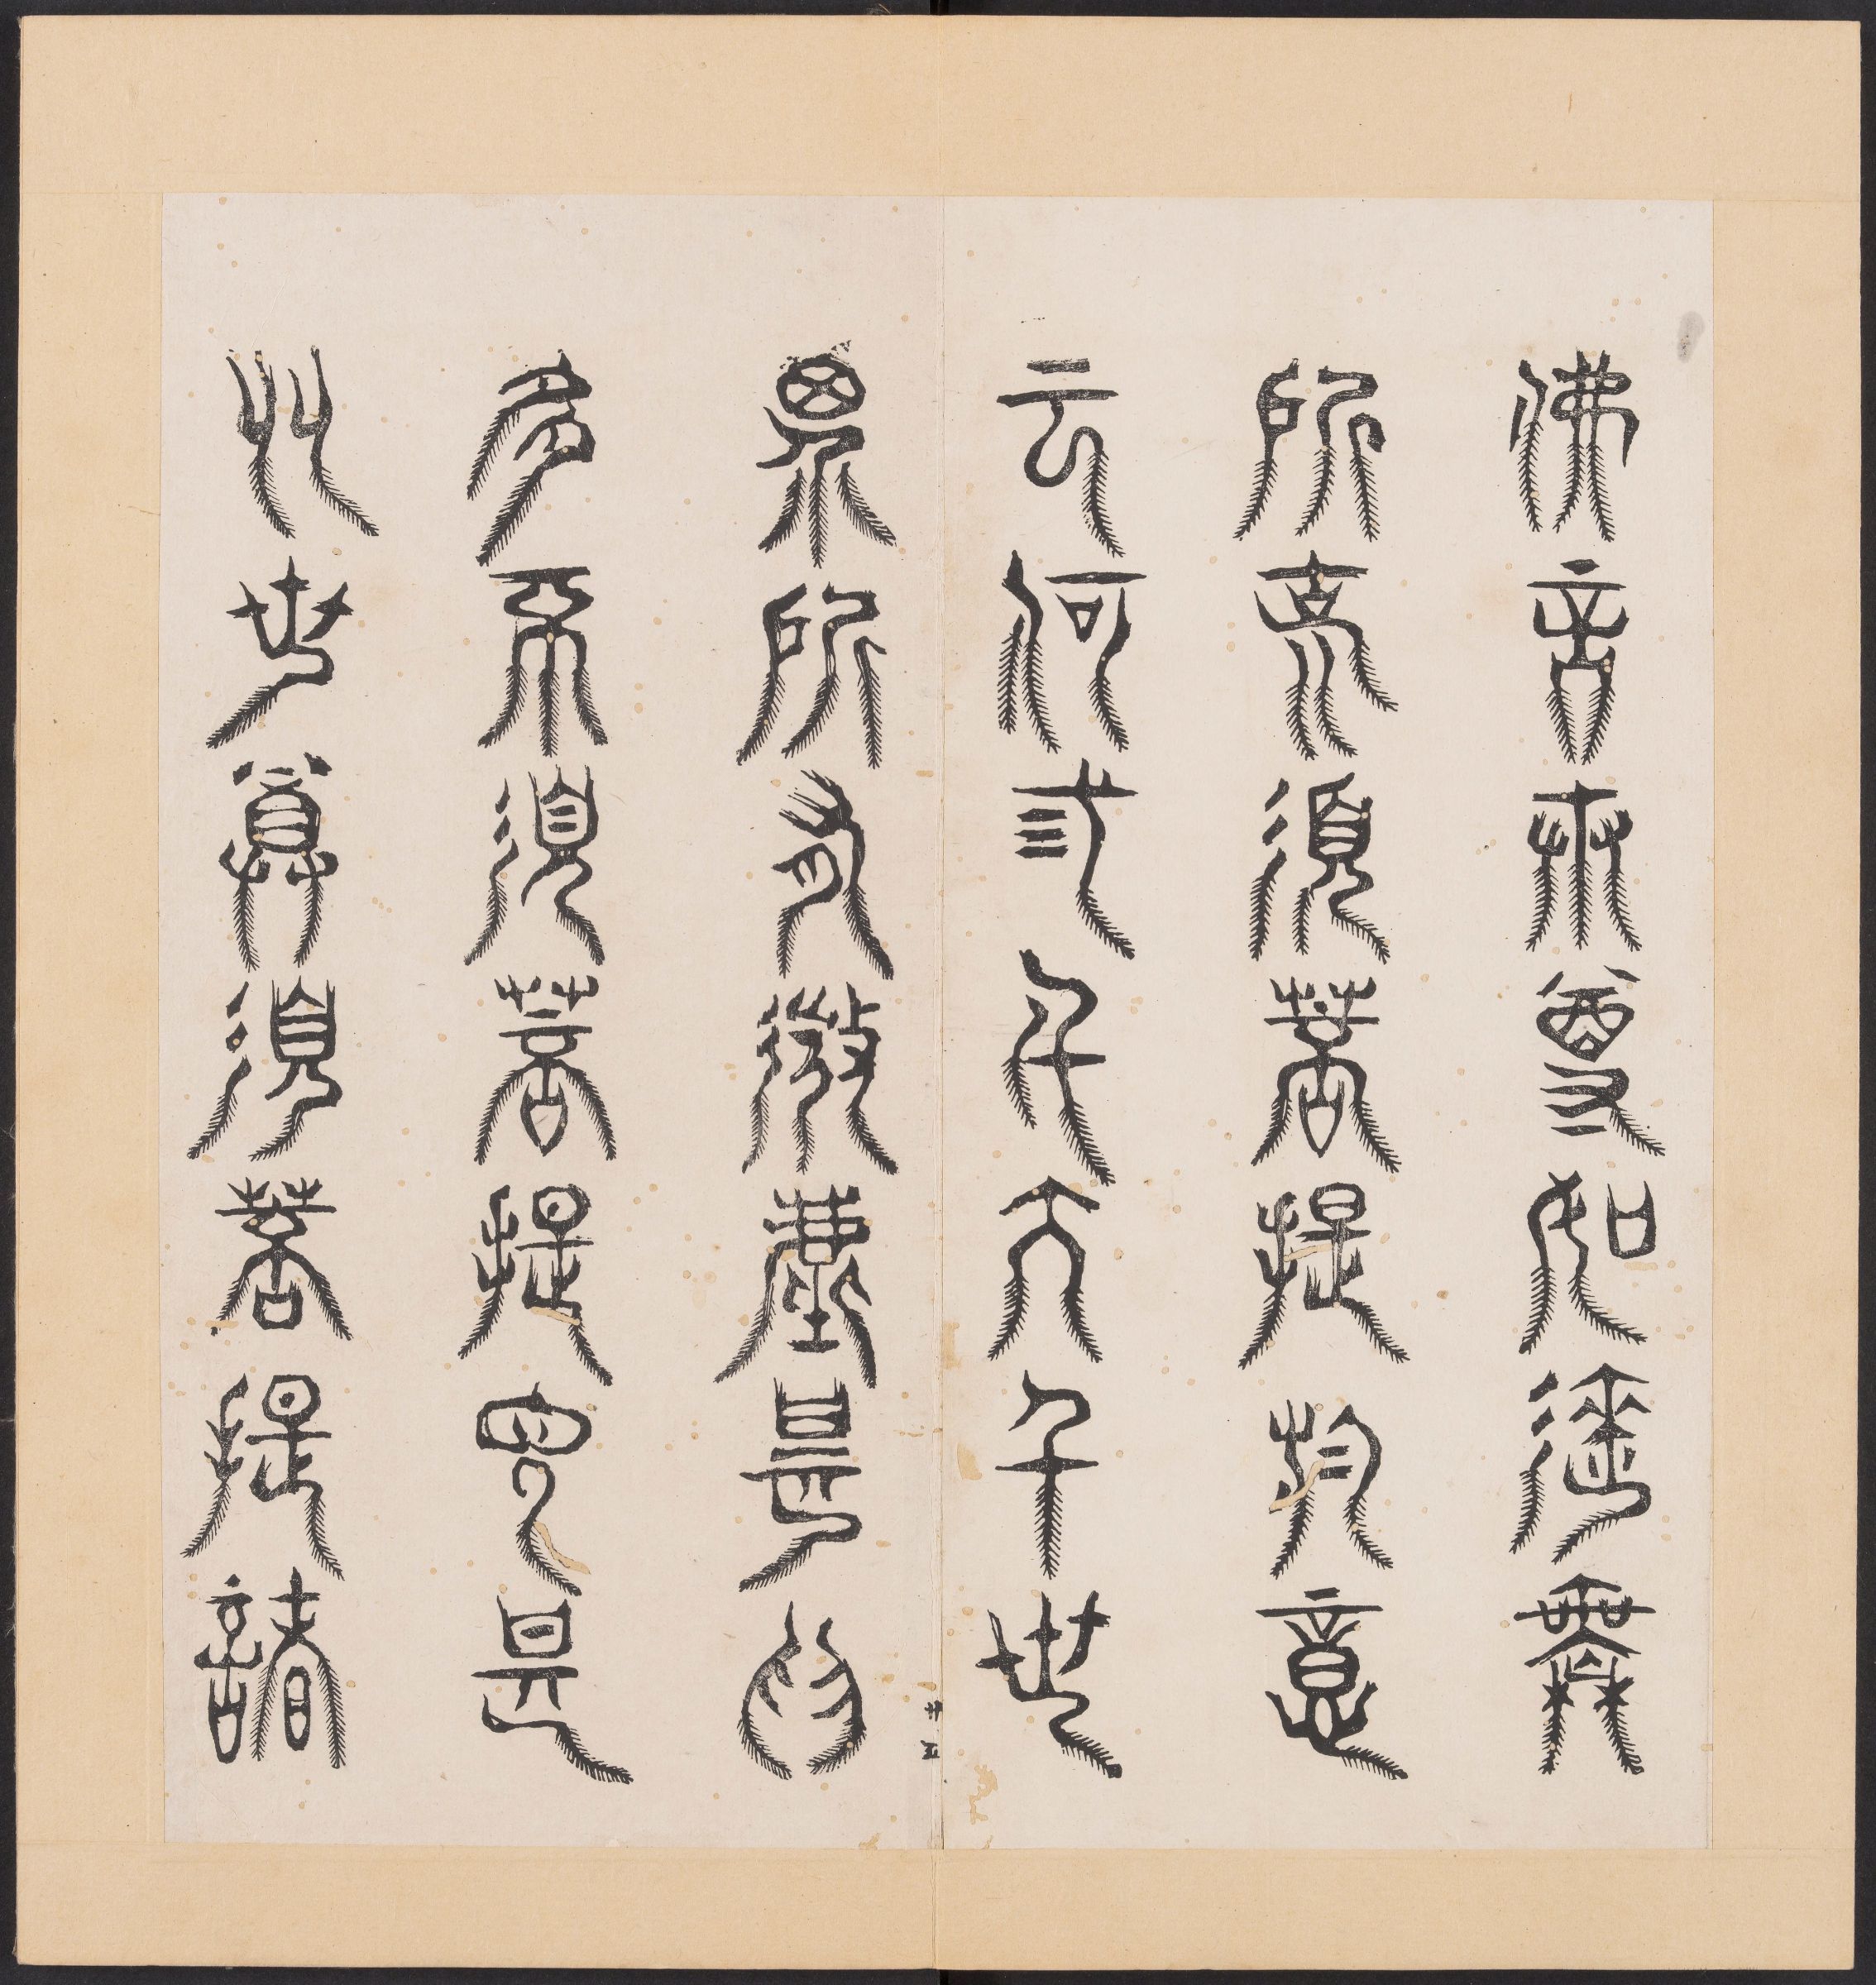 佛言世尊如來無
所說須菩提於意
云何三千大千世
界所有微塵是為
多不須菩提言甚
多世尊須菩提諸
廿五